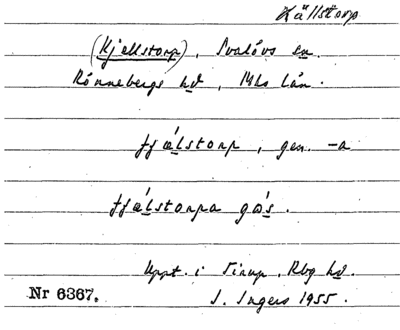 Källstorp
(Kjellstorp), Svalövs sn.
Rönnebergs hd, Mhs län.
ʃjæ̀lstorp, gen. -a
ʃjæ̀lstorpa gås.
Uppt. i Tirup, Rbg hd.
Nr 6367. I. Ingers 1955.